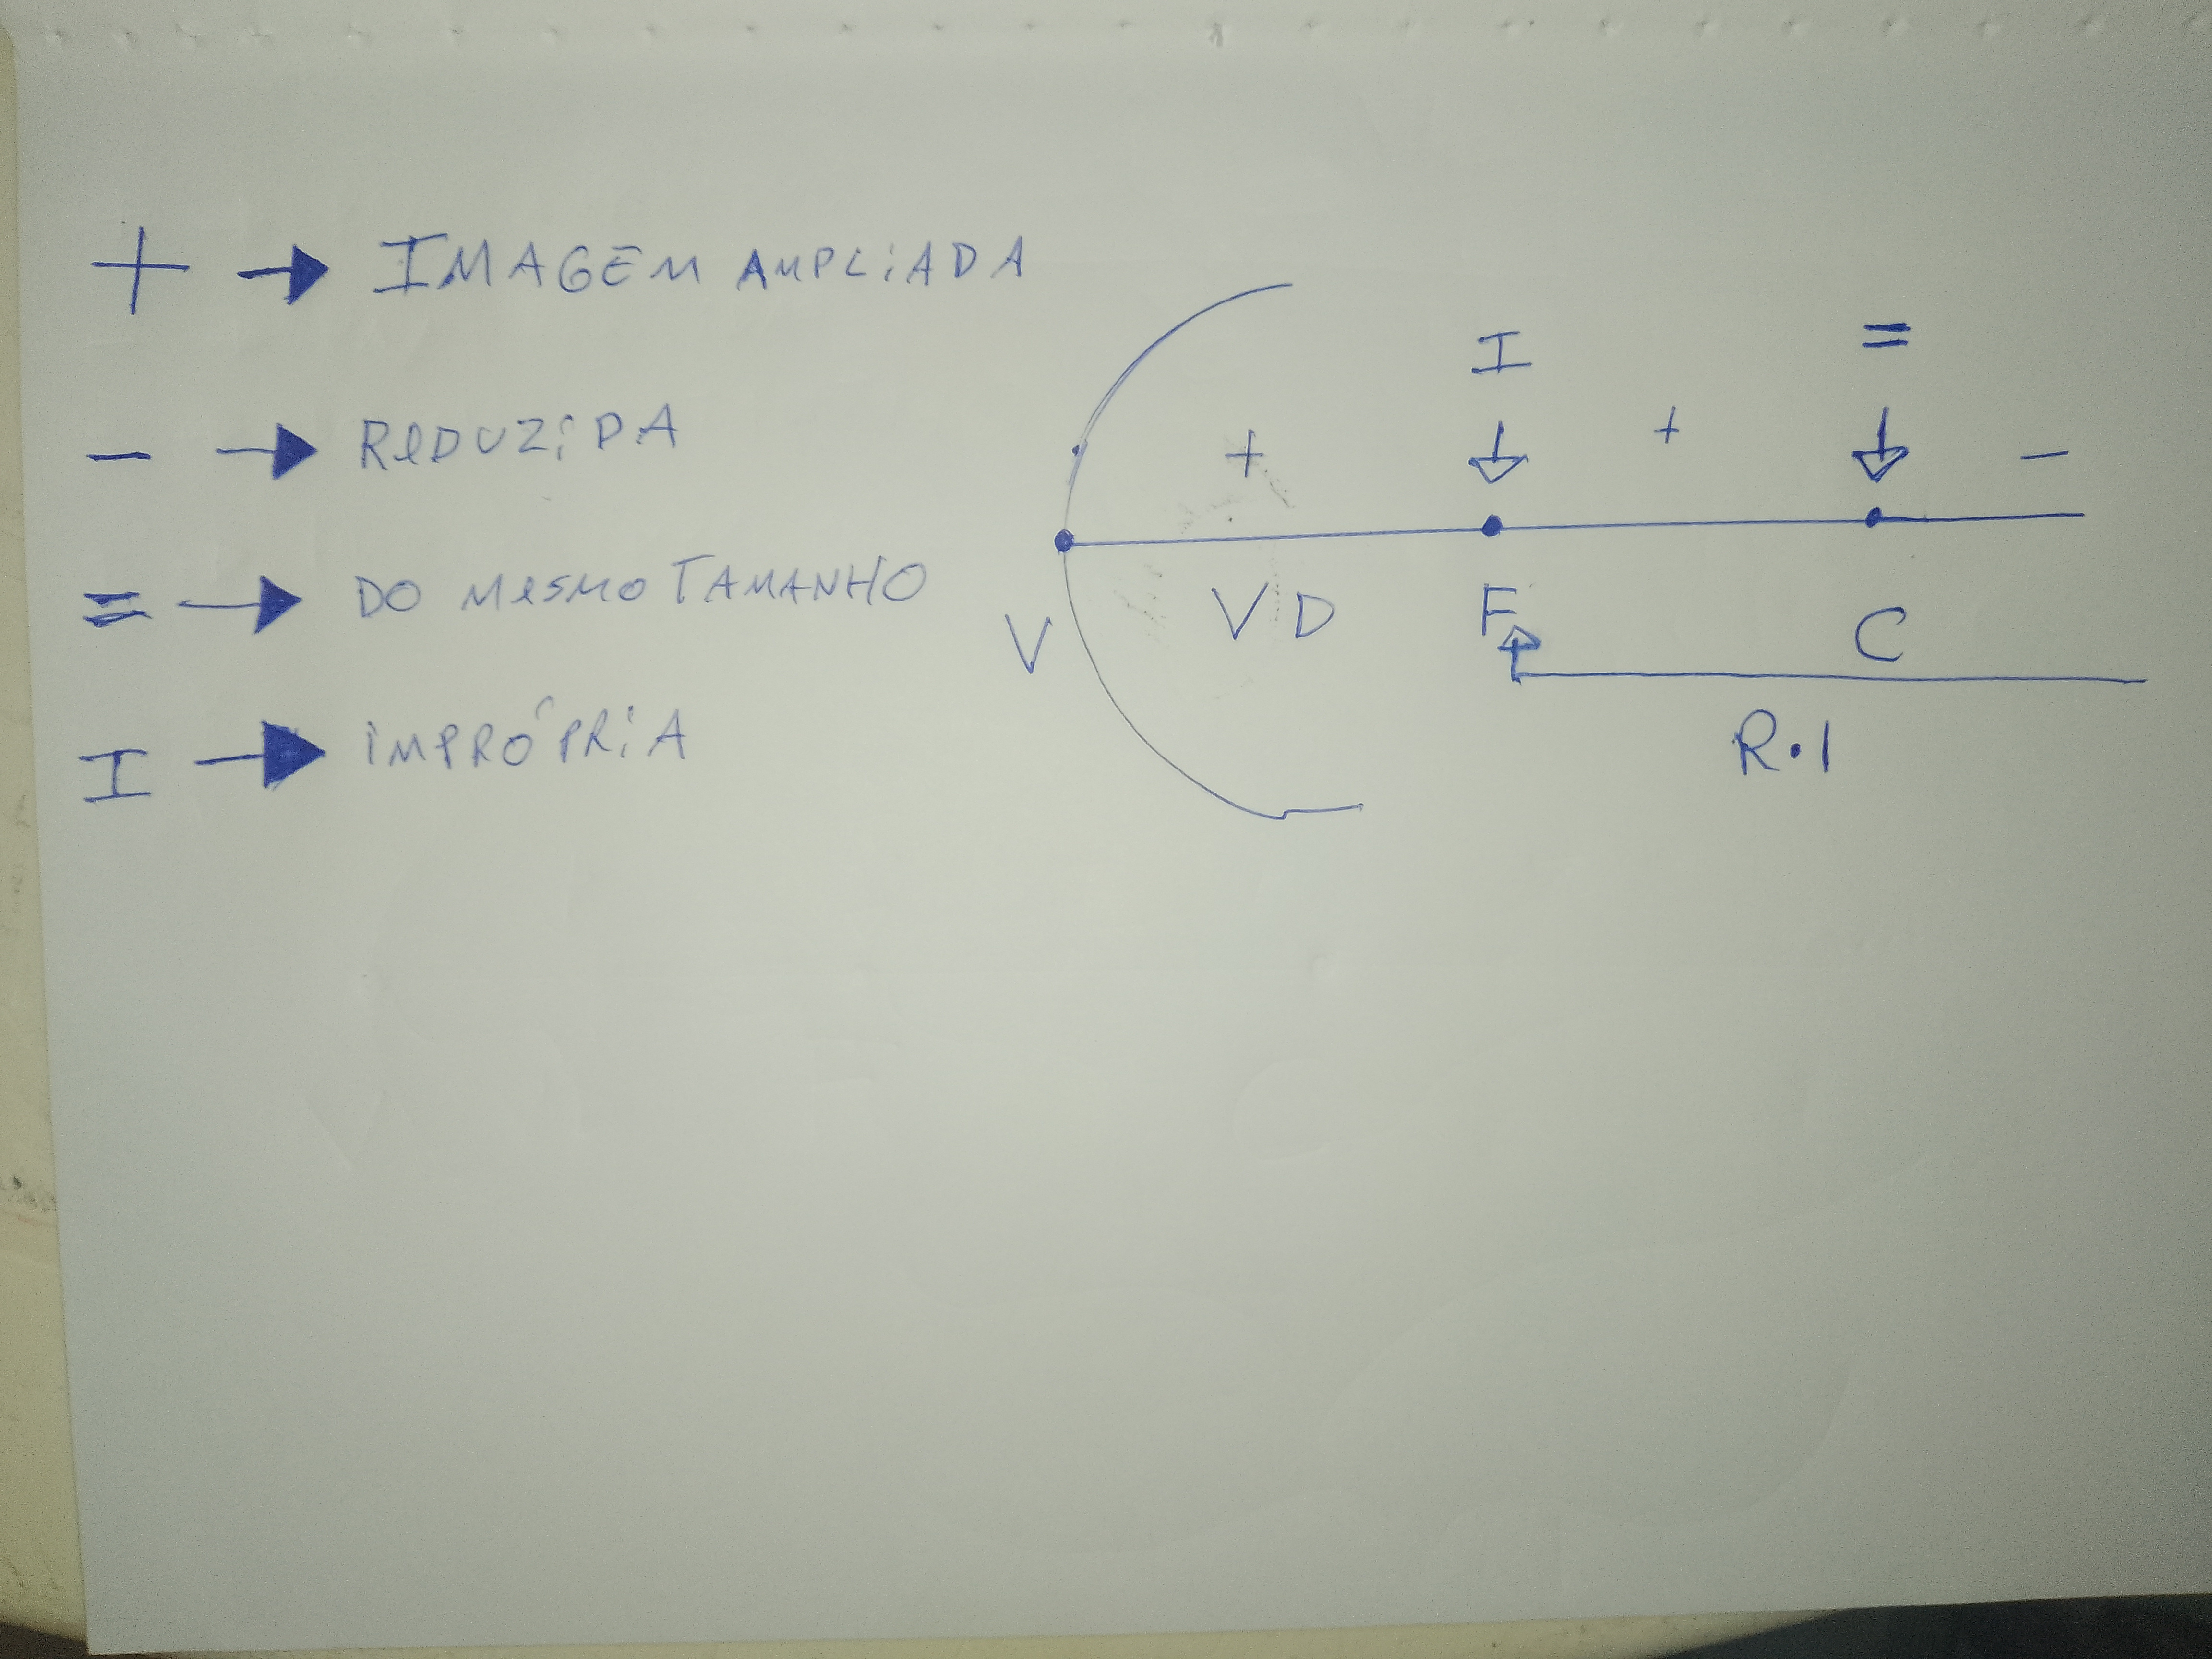 + → IMAGEM AMPLIADA
- → REDUZIDA
= → DO MESMO TAMANHO
I → IMPRÓPRIA
I =
+ + -
V VD F C
R.I